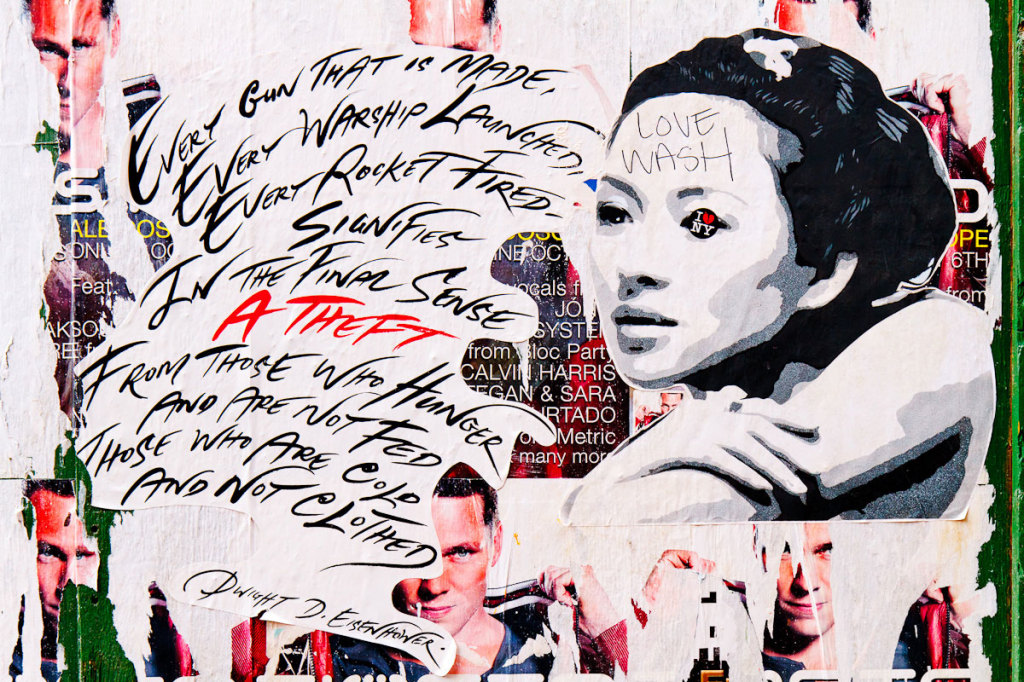 EVERY GUN THAT IS MADE,
EVERY WARSHIP LAUNCHED,
EVERY ROCKET FIRED-
SIGNIFIES
IN THE FINAL SENSE
A THEFT
FROM THOSE WHO HUNGER
AND ARE NOT FED
THOSE WHO ARE COLD
AND NOT CLOTHED
DWIGHT D. EISENHOWER.
LOVE
WASH
I ♥
NY
OPE
6TH
from
Feat
vocals
SYSTEM
from Bloc Party
CALVIN HARRIS
TEGAN & SARA
FURTADO
Metric
many more